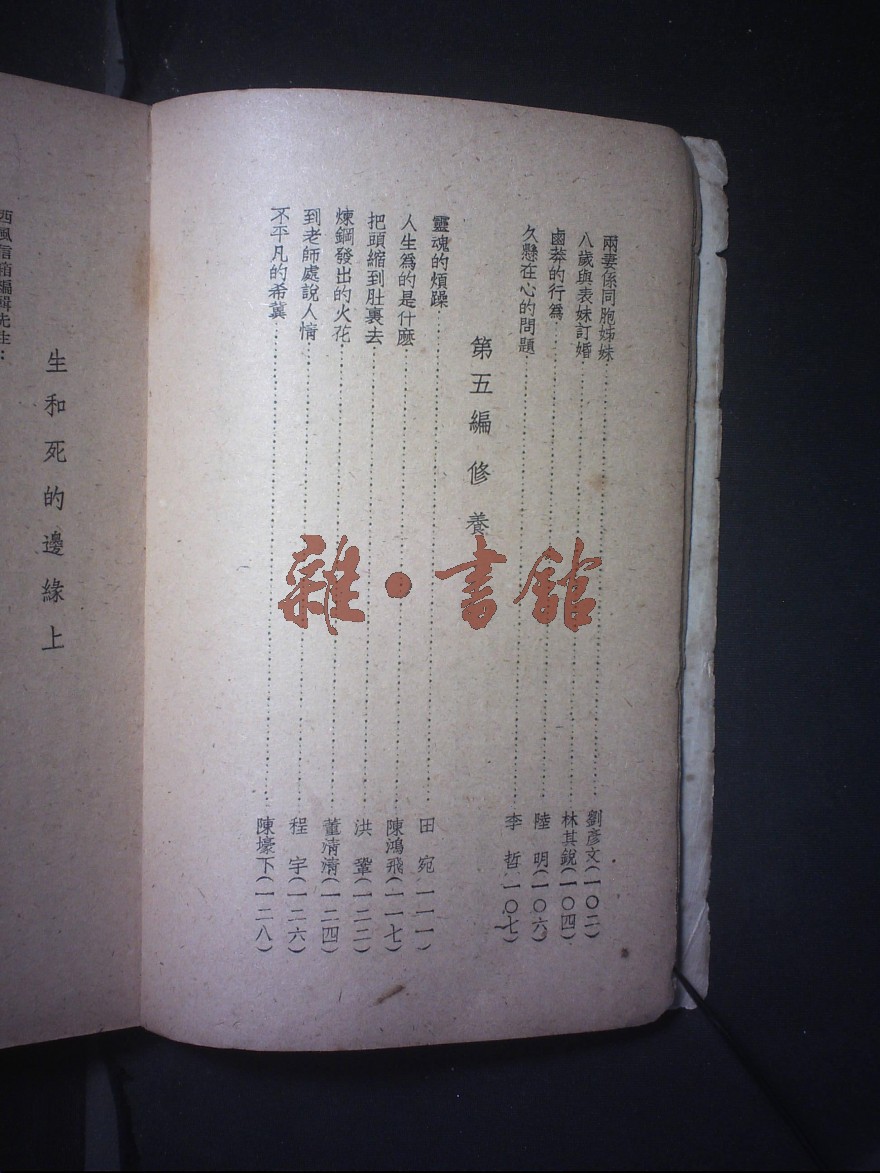 兩妻係同胞姊妹……劉彥文(一〇二)
八歲與表妹訂婚……林其銳(一〇四)
鹵莽的行爲……陸 明(一〇六)
久懸在心的問題……李 哲(一〇七)
第五編 修養
靈魂的煩躁……田 宛(一一一)
人生爲的是什麽……陳鴻飛(一一七)
把頭縮到肚裏去……洪 鞏(一二二)
煉鋼發出的火花……董淸淸(一二四)
到老師處說人情……程 宇(一二六)
不平凡的希冀……陳壕下(一二八)
雜·書館
生和死的邊緣上
西風信箱編輯先生：